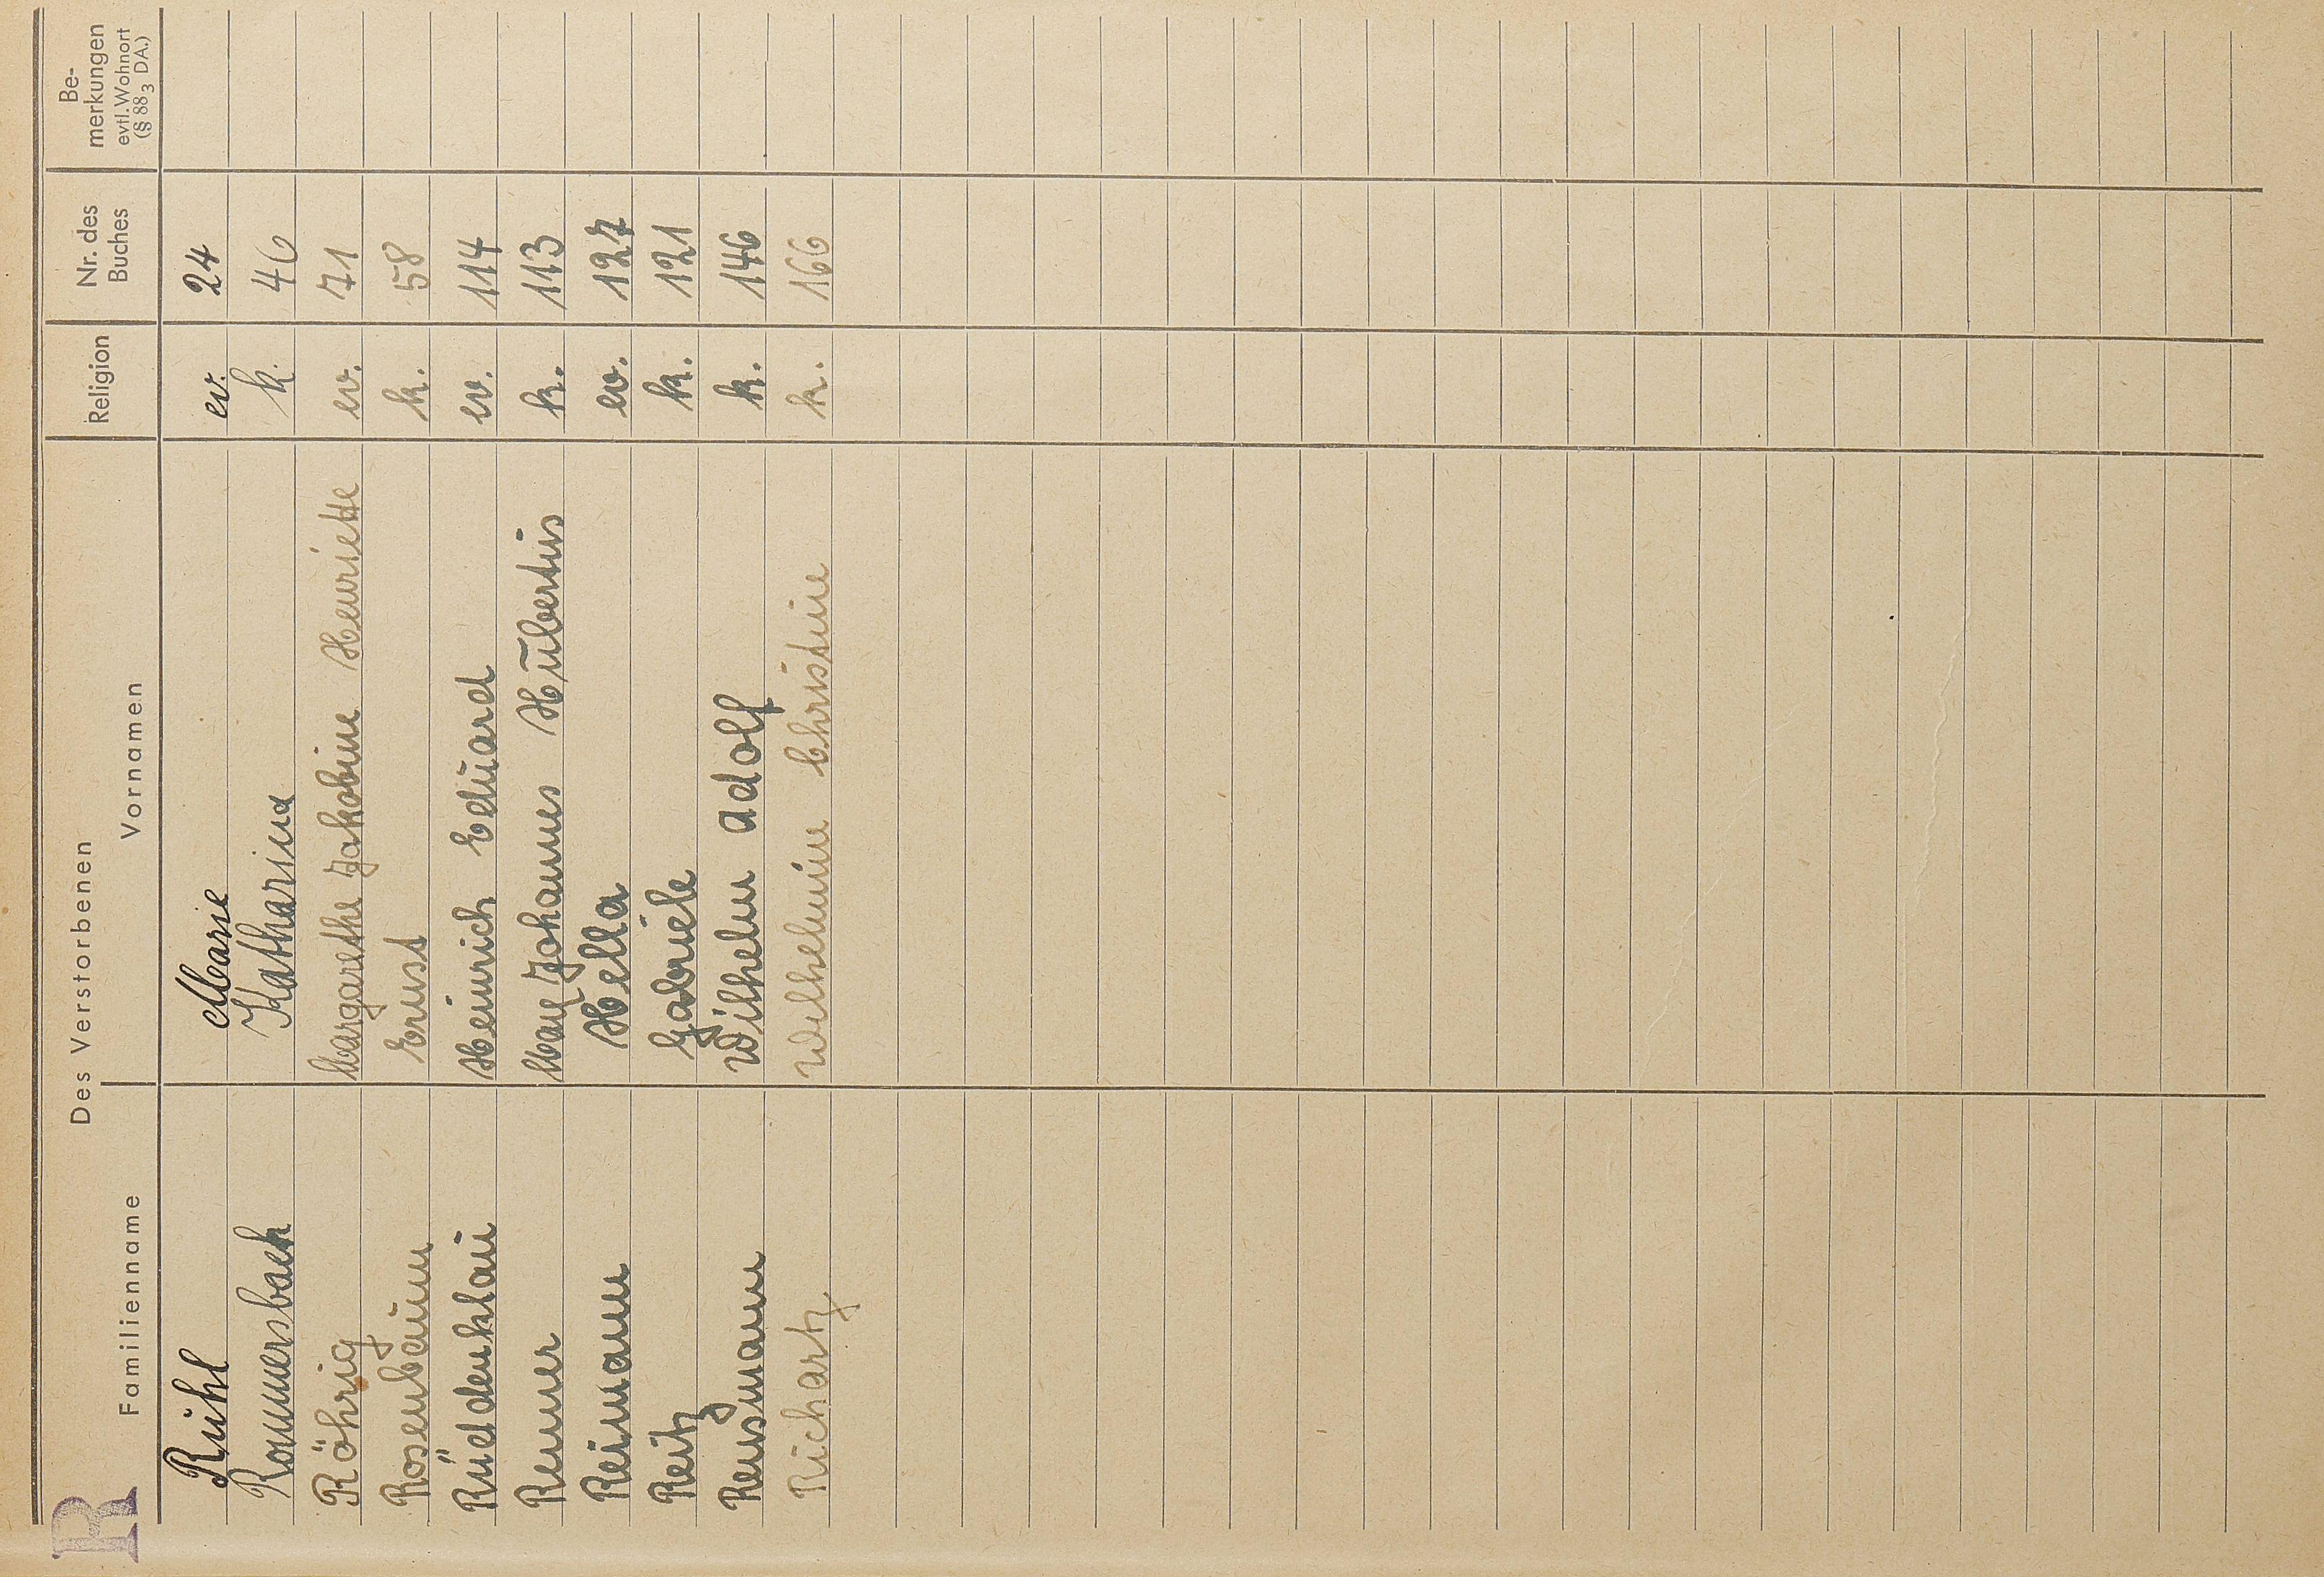 R
Des Verstorbenen
Familienname Vornamen Religion Nr. des Buches Be-merkungen evtl. Wohnort (§ 88₃ DA.)
Rühl Marie ev. 24
Rommersbach Katharina k. 46
Röhrig Margarethe Jakobine Henriette ev. 71
Rosenbaum Ernst k. 58
Rüddenklau Heinrich Eduard ev. 114
Remmer Max Johannes Hubertus k. 113
Reimann Hella ev. 127
Reitz Gabriele k. 121
Reusmann Wilhelm Adolf k. 146
Richartz Wilhelmine Christine k. 166